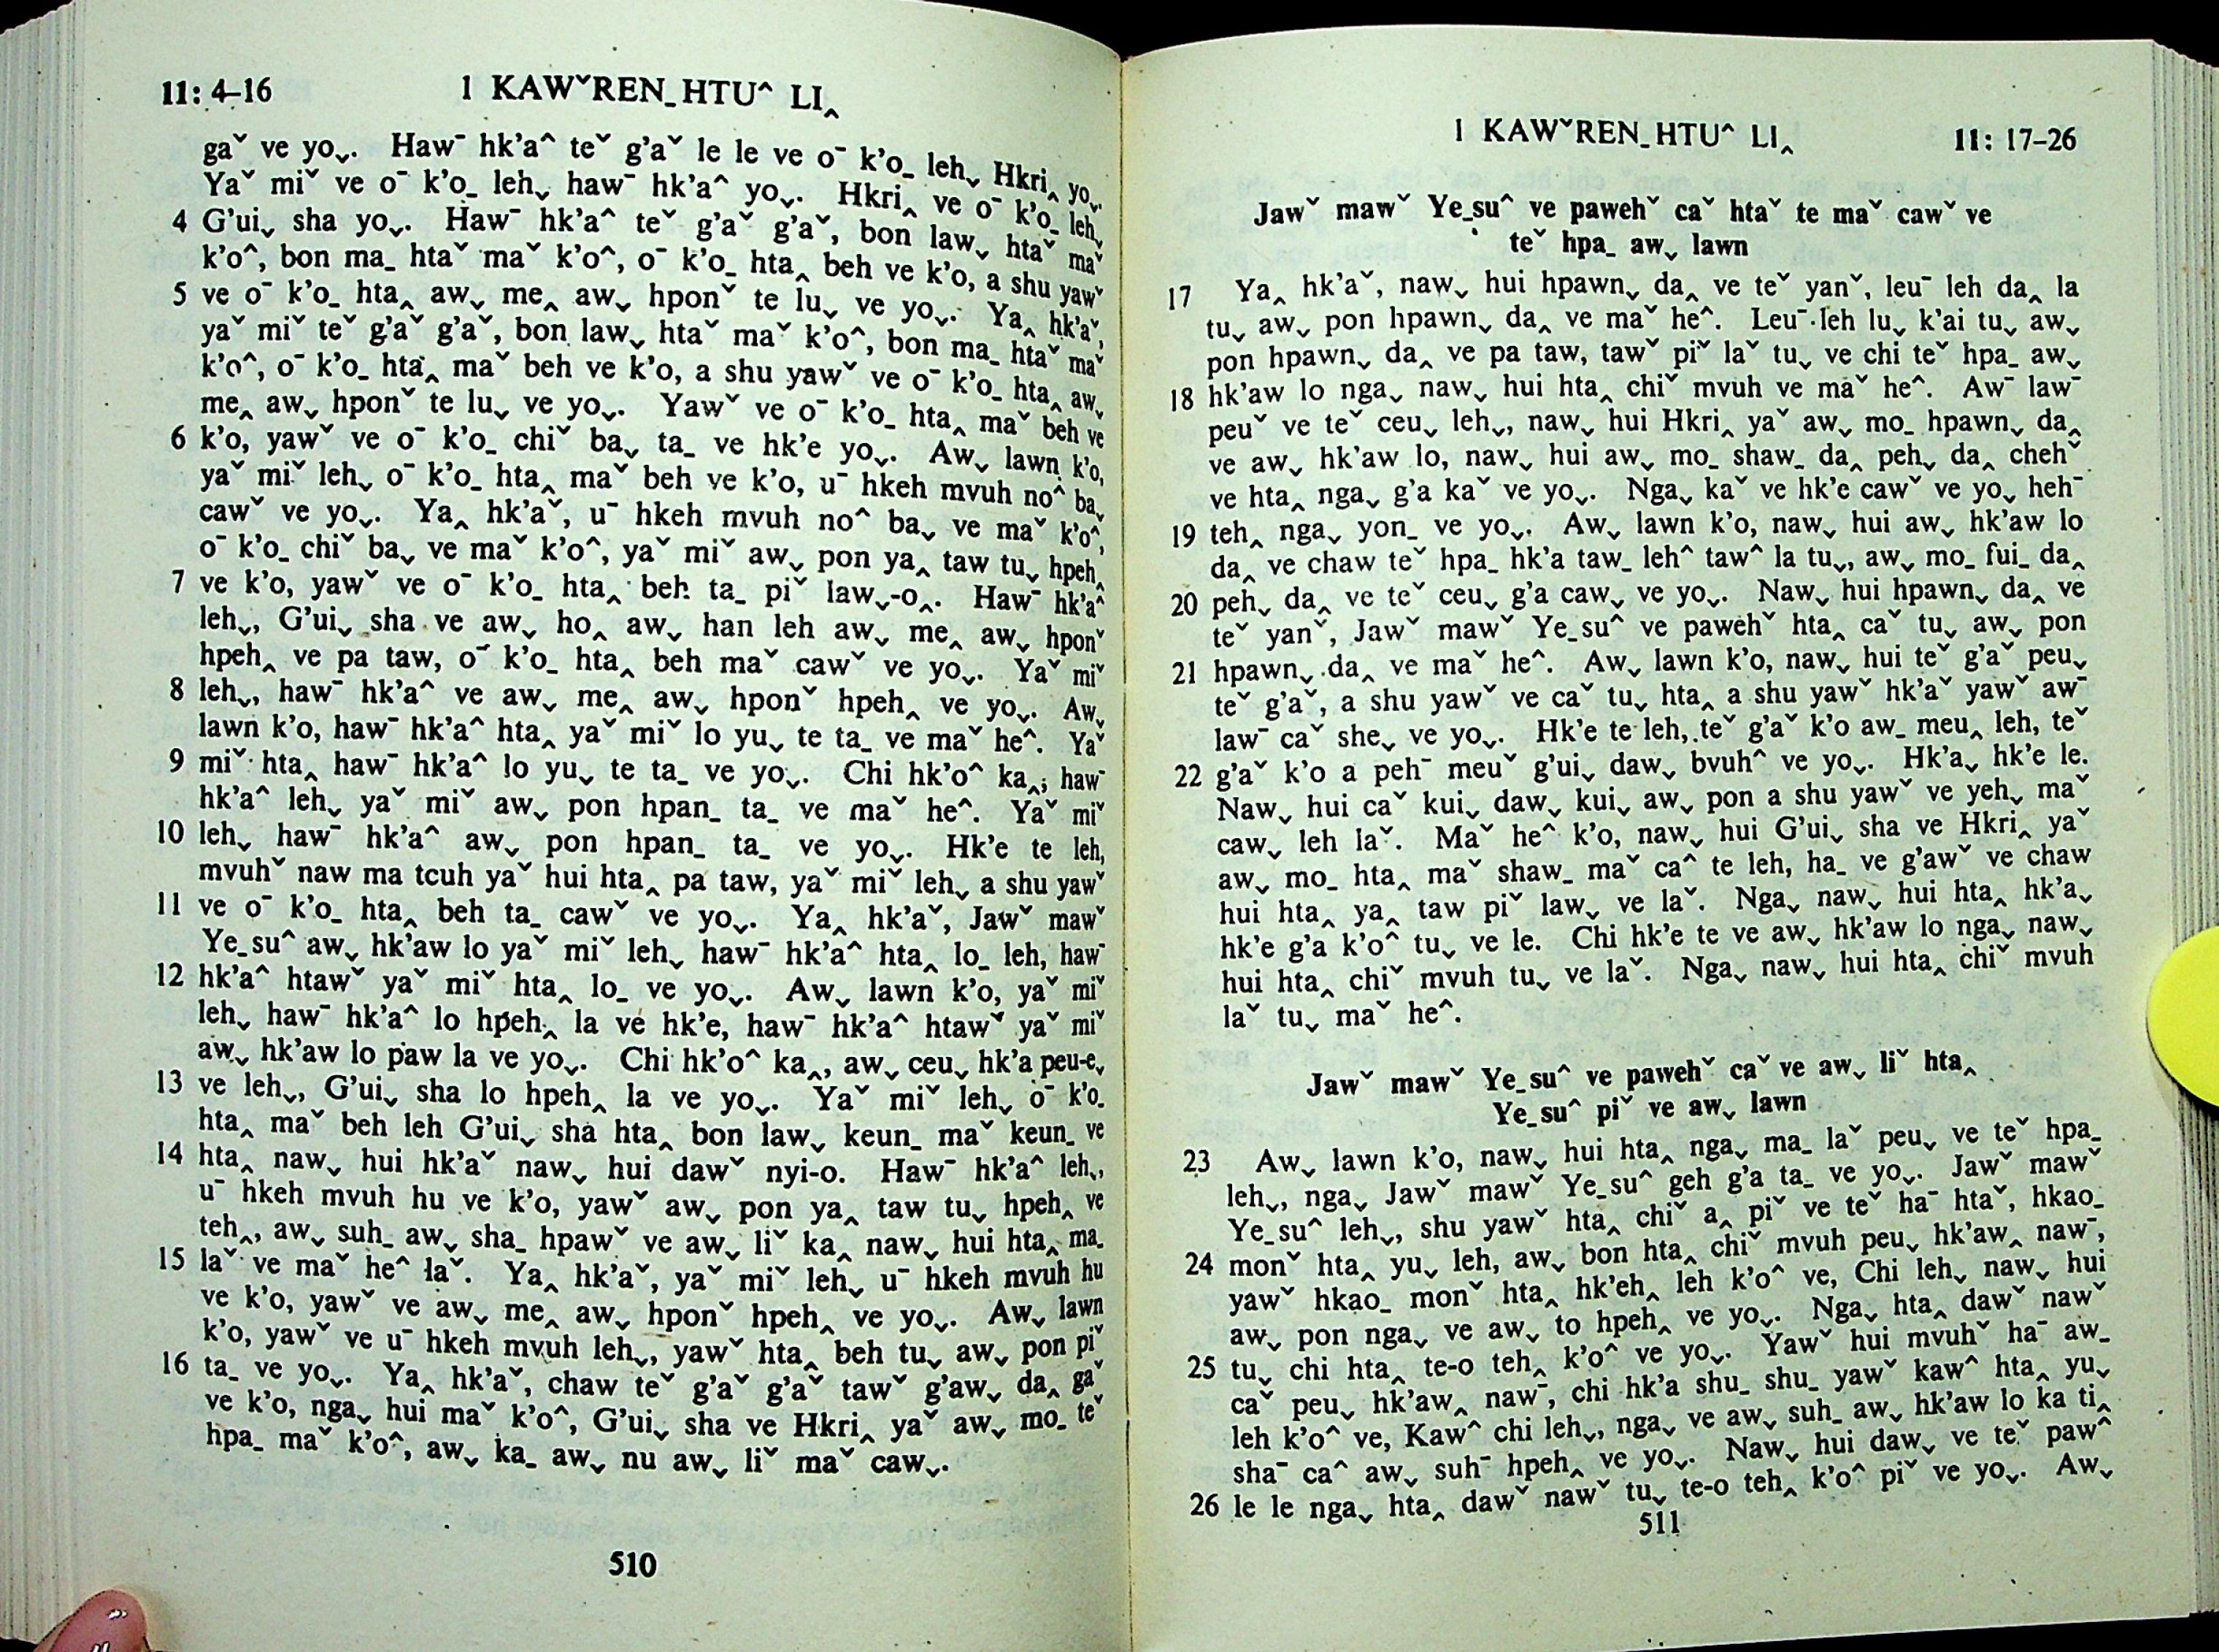 11: 4–16
1 KAWˇREN_HTU^ LI‸
gaˇ ve yo⌄. Haw¯ hk’a^ teˇ g’aˇ le le ve o¯ k’o_ leh⌄ Hkri‸ yo⌄.
Yaˇ miˇ ve o¯ k’o_ leh⌄ haw¯ hk’a^ yo⌄. Hkri‸ ve o¯ k’o_ leh⌄
4 G’ui⌄ sha yo⌄. Haw¯ hk’a^ teˇ g’aˇ g’aˇ, bon law⌄ htaˇ maˇ
k’o^, bon ma_ htaˇ maˇ k’o^, o¯ k’o_ hta‸ beh ve k’o, a shu yawˇ
5 ve o¯ k’o_ hta‸ aw⌄ me‸ aw⌄ hponˇ te lu⌄ ve yo⌄. Ya‸ hk’aˇ,
yaˇ miˇ teˇ g’aˇ g’aˇ, bon law⌄ htaˇ maˇ k’o^, bon ma_ htaˇ maˇ
k’o^, o¯ k’o_ hta‸ maˇ beh ve k’o, a shu yawˇ ve o¯ k’o_ hta‸ aw⌄
me‸ aw⌄ hponˇ te lu⌄ ve yo⌄. Yawˇ ve o¯ k’o_ hta‸ maˇ beh ve
6 k’o, yawˇ ve o¯ k’o_ chiˇ ba⌄ ta_ ve hk’e yo⌄. Aw⌄ lawn k’o,
yaˇ miˇ leh⌄ o¯ k’o_ hta‸ maˇ beh ve k’o, u¯ hkeh mvuh no^ ba⌄
cawˇ ve yo⌄. Ya‸ hk’aˇ, u¯ hkeh mvuh no^ ba⌄ ve maˇ k’o^,
o¯ k’o_ chiˇ ba⌄ ve maˇ k’o^, yaˇ miˇ aw⌄ pon ya‸ taw tu⌄ hpeh‸
7 ve k’o, yawˇ ve o¯ k’o_ hta‸ beh ta_ piˇ law⌄-o‸. Haw¯ hk’a^
leh⌄, G’ui⌄ sha ve aw⌄ ho‸ aw⌄ han leh aw⌄ me‸ aw⌄ hponˇ
hpeh‸ ve pa taw, o¯ k’o_ hta‸ beh maˇ cawˇ ve yo⌄. Yaˇ miˇ
8 leh⌄, haw¯ hk’a^ ve aw⌄ me‸ aw⌄ hponˇ hpeh‸ ve yo⌄. Aw⌄
lawn k’o, haw¯ hk’a^ hta‸ yaˇ miˇ lo yu⌄ te ta_ ve maˇ he^. Yaˇ
9 miˇ hta‸ haw¯ hk’a^ lo yu⌄ te ta_ ve yo⌄. Chi hk’o^ ka‸, haw¯
hk’a^ leh⌄ yaˇ miˇ aw⌄ pon hpan_ ta_ ve maˇ he^. Yaˇ miˇ
10 leh⌄ haw¯ hk’a^ aw⌄ pon hpan_ ta_ ve yo⌄. Hk’e te leh,
mvuhˇ naw ma tcuh yaˇ hui hta‸ pa taw, yaˇ miˇ leh⌄ a shu yawˇ
11 ve o¯ k’o_ hta‸ beh ta_ cawˇ ve yo⌄. Ya‸ hk’aˇ, Jawˇ mawˇ
Ye_su^ aw⌄ hk’aw lo yaˇ miˇ leh⌄ haw¯ hk’a^ hta‸ lo_ leh, haw¯
12 hk’a^ htawˇ yaˇ miˇ hta‸ lo_ ve yo⌄. Aw⌄ lawn k’o, yaˇ miˇ
leh⌄ haw¯ hk’a^ lo hpeh‸ la ve hk’e, haw¯ hk’a^ htawˇ yaˇ miˇ
aw⌄ hk’aw lo paw la ve yo⌄. Chi hk’o^ ka‸, aw⌄ ceu⌄ hk’a peu-e⌄
13 ve leh⌄, G’ui⌄ sha lo hpeh‸ la ve yo⌄. Yaˇ miˇ leh⌄ o¯ k’o_
hta‸ maˇ beh leh G’ui⌄ sha hta‸ bon law⌄ keun_ maˇ keun_ ve
14 hta‸ naw⌄ hui hk’aˇ naw⌄ hui dawˇ nyi-o. Haw¯ hk’a^ leh⌄,
u¯ hkeh mvuh hu ve k’o, yawˇ aw⌄ pon ya‸ taw tu⌄ hpeh‸ ve
teh‸, aw⌄ suh_ aw⌄ sha_ hpawˇ ve aw⌄ liˇ ka‸ naw⌄ hui hta‸ ma_
15 laˇ ve maˇ he^ laˇ. Ya‸ hk’aˇ, yaˇ miˇ leh⌄ u¯ hkeh mvuh hu
ve k’o, yawˇ ve aw⌄ me‸ aw⌄ hponˇ hpeh‸ ve yo⌄. Aw⌄ lawn
k’o, yawˇ ve u¯ hkeh mvuh leh⌄, yawˇ hta‸ beh tu⌄ aw⌄ pon piˇ
16 ta_ ve yo⌄. Ya‸ hk’aˇ, chaw teˇ g’aˇ g’aˇ tawˇ g’aw⌄ da‸ gaˇ
ve k’o, nga⌄ hui maˇ k’o^, G’ui⌄ sha ve Hkri‸ yaˇ aw⌄ mo_ teˇ
hpa_ maˇ k’o^, aw⌄ ka_ aw⌄ nu aw⌄ liˇ maˇ caw⌄.
510
1 KAWˇREN_HTU^ LI‸
11: 17–26
Jawˇ mawˇ Ye_su^ ve pawehˇ caˇ htaˇ te maˇ cawˇ ve
teˇ hpa_ aw⌄ lawn
17 Ya‸ hk’aˇ, naw⌄ hui hpawn⌄ da‸ ve teˇ yanˇ, leu¯ leh da‸ la
tu⌄ aw⌄ pon hpawn⌄ da‸ ve maˇ he^. Leu¯ leh lu⌄ k’ai tu⌄ aw⌄
pon hpawn⌄ da‸ ve pa taw, tawˇ piˇ laˇ tu⌄ ve chi teˇ hpa_ aw⌄
18 hk’aw lo nga⌄ naw⌄ hui hta‸ chiˇ mvuh ve maˇ he^. Aw¯ law¯
peuˇ ve teˇ ceu⌄ leh⌄, naw⌄ hui Hkri‸ yaˇ aw⌄ mo_ hpawn⌄ da‸
ve aw⌄ hk’aw lo, naw⌄ hui aw⌄ mo_ shaw_ da‸ peh⌄ da‸ chehˇ
ve hta‸ nga⌄ g’a kaˇ ve yo⌄. Nga⌄ kaˇ ve hk’e cawˇ ve yo⌄ heh¯
19 teh‸ nga⌄ yon_ ve yo⌄. Aw⌄ lawn k’o, naw⌄ hui aw⌄ hk’aw lo
da‸ ve chaw teˇ hpa_ hk’a taw_ leh^ taw^ la tu⌄, aw⌄ mo_ fui_ da‸
20 peh⌄ da‸ ve teˇ ceu⌄ g’a caw⌄ ve yo⌄. Naw⌄ hui hpawn⌄ da‸ ve
teˇ yanˇ, Jawˇ mawˇ Ye_su^ ve pawehˇ hta‸ caˇ tu⌄ aw⌄ pon
21 hpawn⌄ da‸ ve maˇ he^. Aw⌄ lawn k’o, naw⌄ hui teˇ g’aˇ peu⌄
teˇ g’aˇ, a shu yawˇ ve caˇ tu⌄ hta‸ a shu yawˇ hk’aˇ yawˇ aw¯
law¯ caˇ she⌄ ve yo⌄. Hk’e te leh, teˇ g’aˇ k’o aw_ meu‸ leh, teˇ
22 g’aˇ k’o a peh¯ meuˇ g’ui⌄ daw⌄ bvuh^ ve yo⌄. Hk’a⌄ hk’e le.
Naw⌄ hui caˇ kui⌄ daw⌄ kui⌄ aw⌄ pon a shu yawˇ ve yeh⌄ maˇ
caw⌄ leh laˇ. Maˇ he^ k’o, naw⌄ hui G’ui⌄ sha ve Hkri‸ yaˇ
aw⌄ mo_ hta‸ maˇ shaw_ maˇ ca^ te leh, ha_ ve g’awˇ ve chaw
hui hta‸ ya‸ taw piˇ law⌄ ve laˇ. Nga⌄ naw⌄ hui hta‸ hk’a⌄
hk’e g’a k’o^ tu⌄ ve le. Chi hk’e te ve aw⌄ hk’aw lo nga⌄ naw⌄
hui hta‸ chiˇ mvuh tu⌄ ve laˇ. Nga⌄ naw⌄ hui hta‸ chiˇ mvuh
laˇ tu⌄ maˇ he^.
Jawˇ mawˇ Ye_su^ ve pawehˇ caˇ ve aw⌄ liˇ hta‸
Ye_su^ piˇ ve aw⌄ lawn
23 Aw⌄ lawn k’o, naw⌄ hui hta‸ nga⌄ ma_ laˇ peu⌄ ve teˇ hpa_
leh⌄, nga⌄ Jawˇ mawˇ Ye_su^ geh g’a ta_ ve yo⌄. Jawˇ mawˇ
Ye_su^ leh⌄, shu yawˇ hta‸ chiˇ a‸ piˇ ve teˇ ha¯ htaˇ, hkao_
24 monˇ hta‸ yu⌄ leh, aw⌄ bon hta‸ chiˇ mvuh peu⌄ hk’aw‸ naw¯,
yawˇ hkao_ monˇ hta‸ hk’eh‸ leh k’o^ ve, Chi leh⌄ naw⌄ hui
aw⌄ pon nga⌄ ve aw⌄ to hpeh‸ ve yo⌄. Nga⌄ hta‸ dawˇ nawˇ
25 tu⌄ chi hta‸ te-o teh‸ k’o^ ve yo⌄. Yawˇ hui mvuhˇ ha¯ aw_
caˇ peu⌄ hk’aw‸ naw¯, chi hk’a shu_ shu_ yawˇ kaw^ hta‸ yu⌄
leh k’o^ ve, Kaw^ chi leh⌄, nga⌄ ve aw⌄ suh_ aw⌄ hk’aw lo ka ti‸
sha¯ ca^ aw⌄ suh¯ hpeh‸ ve yo⌄. Naw⌄ hui daw⌄ ve teˇ paw^
26 le le nga⌄ hta‸ dawˇ nawˇ tu⌄ te-o teh‸ k’o^ piˇ ve yo⌄. Aw⌄
511